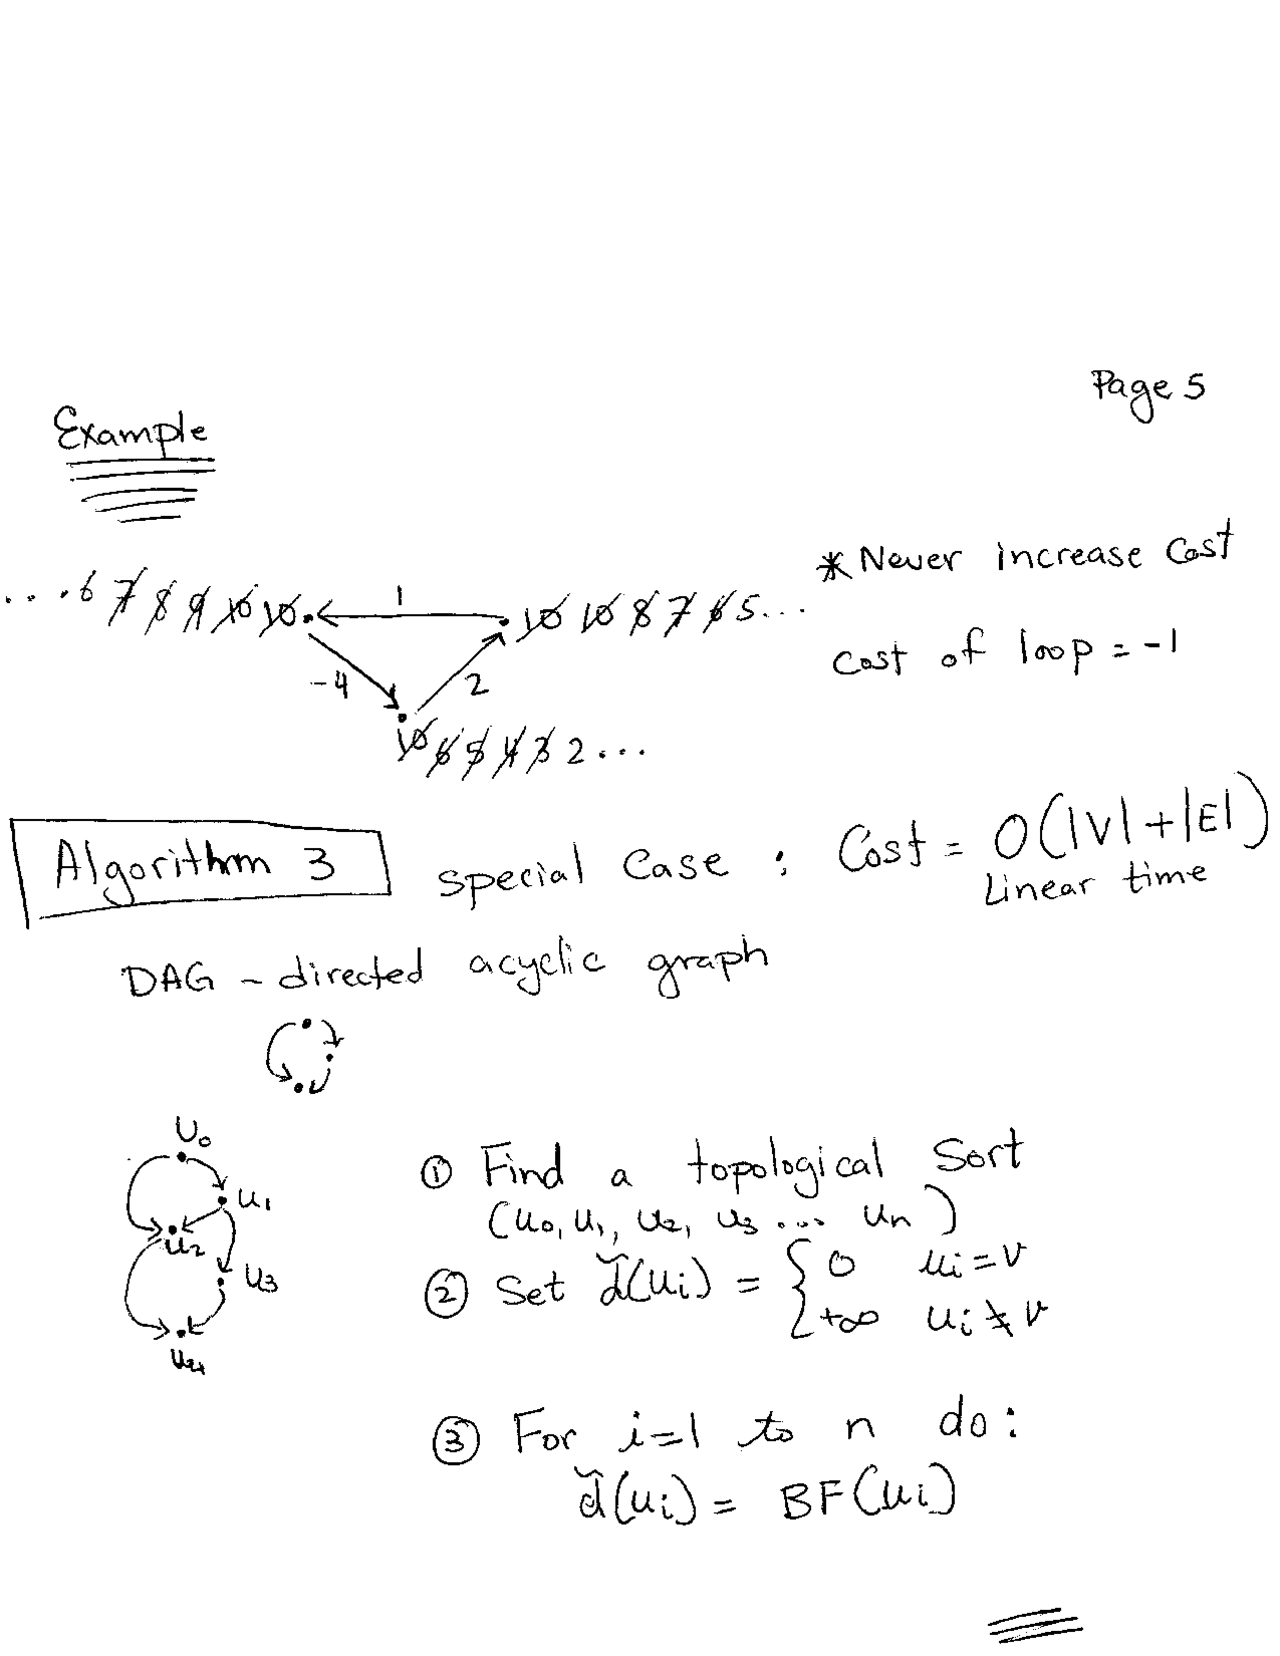 Page 5
Example
...6 7 8 9 10 10. 1 .10 10 8 7 6 5...
* Never increase Cost
-4 2
Cost of loop = -1
10 6 5 4 3 2...
Algorithm 3 special Case : Cost = O(|V|+|E|)
Linear time
DAG - directed acyclic graph
U₀
U₁
U₂
U₃
U₄
① Find a topological Sort
(u₀, u₁, u₂, u₃ ... uₙ)
② Set d̆(uᵢ) = { 0 uᵢ=v
+∞ uᵢ≠v
③ For i=1 to n do:
d̆(uᵢ) = BF(uᵢ)